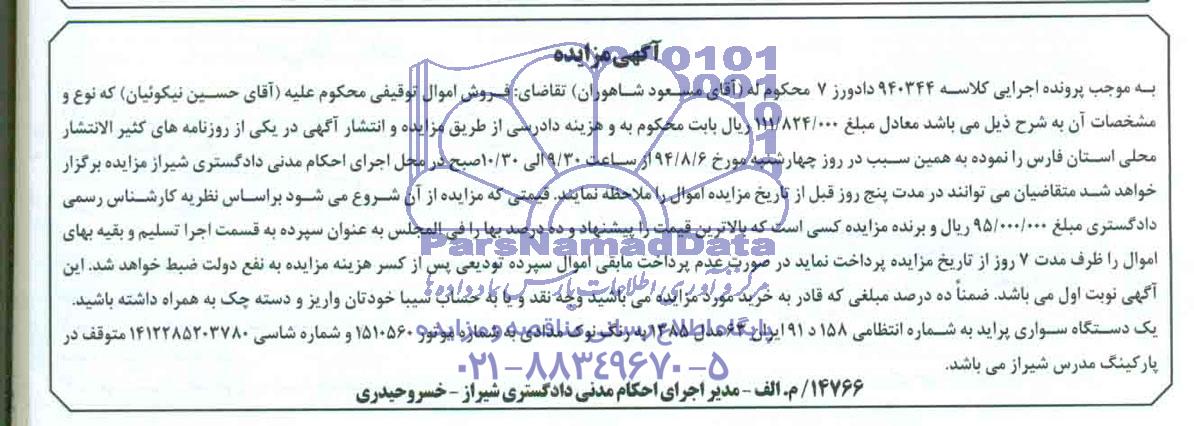 آگهی مزایده
به موجب پرونده اجرایی کلاسه ۹۴۰۳۴۴ دادورز ۷ محکوم له (آقای مسعود شاهوران) تقاضای: فروش اموال توقیفی محکوم علیه (آقای حسین نیکوئیان) که نوع و
مشخصات آن به شرح ذیل می باشد معادل مبلغ ۱۱۱/۸۲۴/۰۰۰ ریال بابت محکوم به و هزینه دادرسی از طریق مزایده و انتشار آگهی در یکی از روزنامه های کثیر الانتشار
محلی استان فارس را نموده به همین سبب در روز چهارشنبه مورخ ۹۴/۸/۶ از ساعت ۹/۳۰ الی ۱۰/۳۰ صبح در محل اجرای احکام مدنی دادگستری شیراز مزایده برگزار
خواهد شد متقاضیان می توانند در مدت پنج روز قبل از تاریخ مزایده اموال را ملاحظه نمایند. قیمتی که مزایده از آن شروع می شود براساس نظریه کارشناس رسمی
دادگستری مبلغ ۹۵/۰۰۰/۰۰۰ ریال و برنده مزایده کسی است که بالاترین قیمت را پیشنهاد و ده درصد بها را فی المجلس به عنوان سپرده به قسمت اجرا تسلیم و بقیه بهای
اموال را ظرف مدت ۷ روز از تاریخ مزایده پرداخت نماید در صورت عدم پرداخت مابقی اموال سپرده تودیعی پس از کسر هزینه مزایده به نفع دولت ضبط خواهد شد. این
آگهی نوبت اول می باشد. ضمناً ده درصد مبلغی که قادر به خرید مورد مزایده می باشید وجه نقد و یا به حساب سیبا خودتان واریز و دسته چک به همراه داشته باشید.
یک دستگاه سواری پراید به شماره انتظامی ۱۵۸ د ۹۱ ایران ۶۳ مدل ۱۳۸۵ به رنگ نوک مدادی به شماره موتور ۱۵۱۰۵۶۰ و شماره شاسی ۱۴۱۲۲۸۵۲۰۳۷۸۰ متوقف در
پارکینگ مدرس شیراز می باشد.
۱۴۷۶۶/م.الف - مدیر اجرای احکام مدنی دادگستری شیراز - خسرو حیدری
ParsNamadData
مرکز فرآوری اطلاعات پارس نماد داده ها
پایگاه اطلاع رسانی مناقصه و مزایده
۰۲۱-۸۸۳۴۹۶۷۰-۵